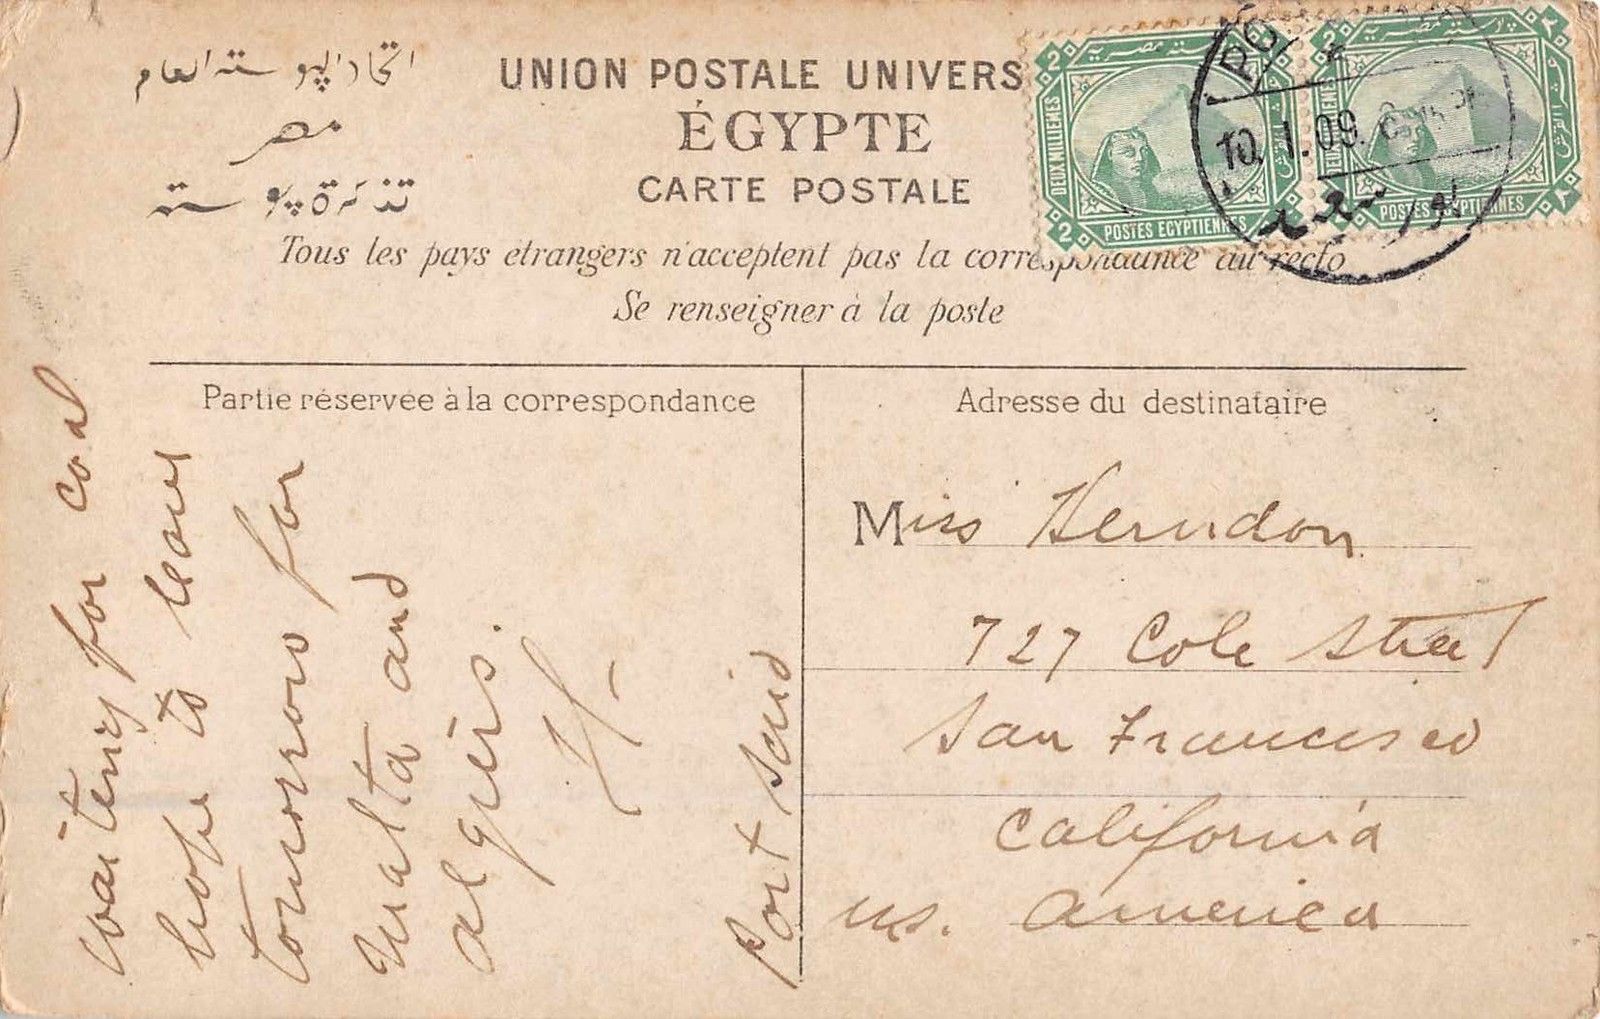 اتحاد البوسته العام
مصر
تذكرة بوسته
UNION POSTALE UNIVERS
ÉGYPTE
CARTE POSTALE
Tous les pays étrangers n'acceptent pas la correspondaunce au recto
Se renseigner à la poste
2 2
DEUX MILLIEMES
POSTES EGYPTIENNES
2
2
DEUX MILLIEMES
POSTES EGYPTIENNES
PO
10. I. 09.
بور سعيد
Partie réservée à la correspondance
waiting for coal
hope to leave
tomorrow for
Malta and
algiers.
Port Said
Adresse du destinataire
Miss Herndon
727 Cole Street
San Francisco
California
us. America